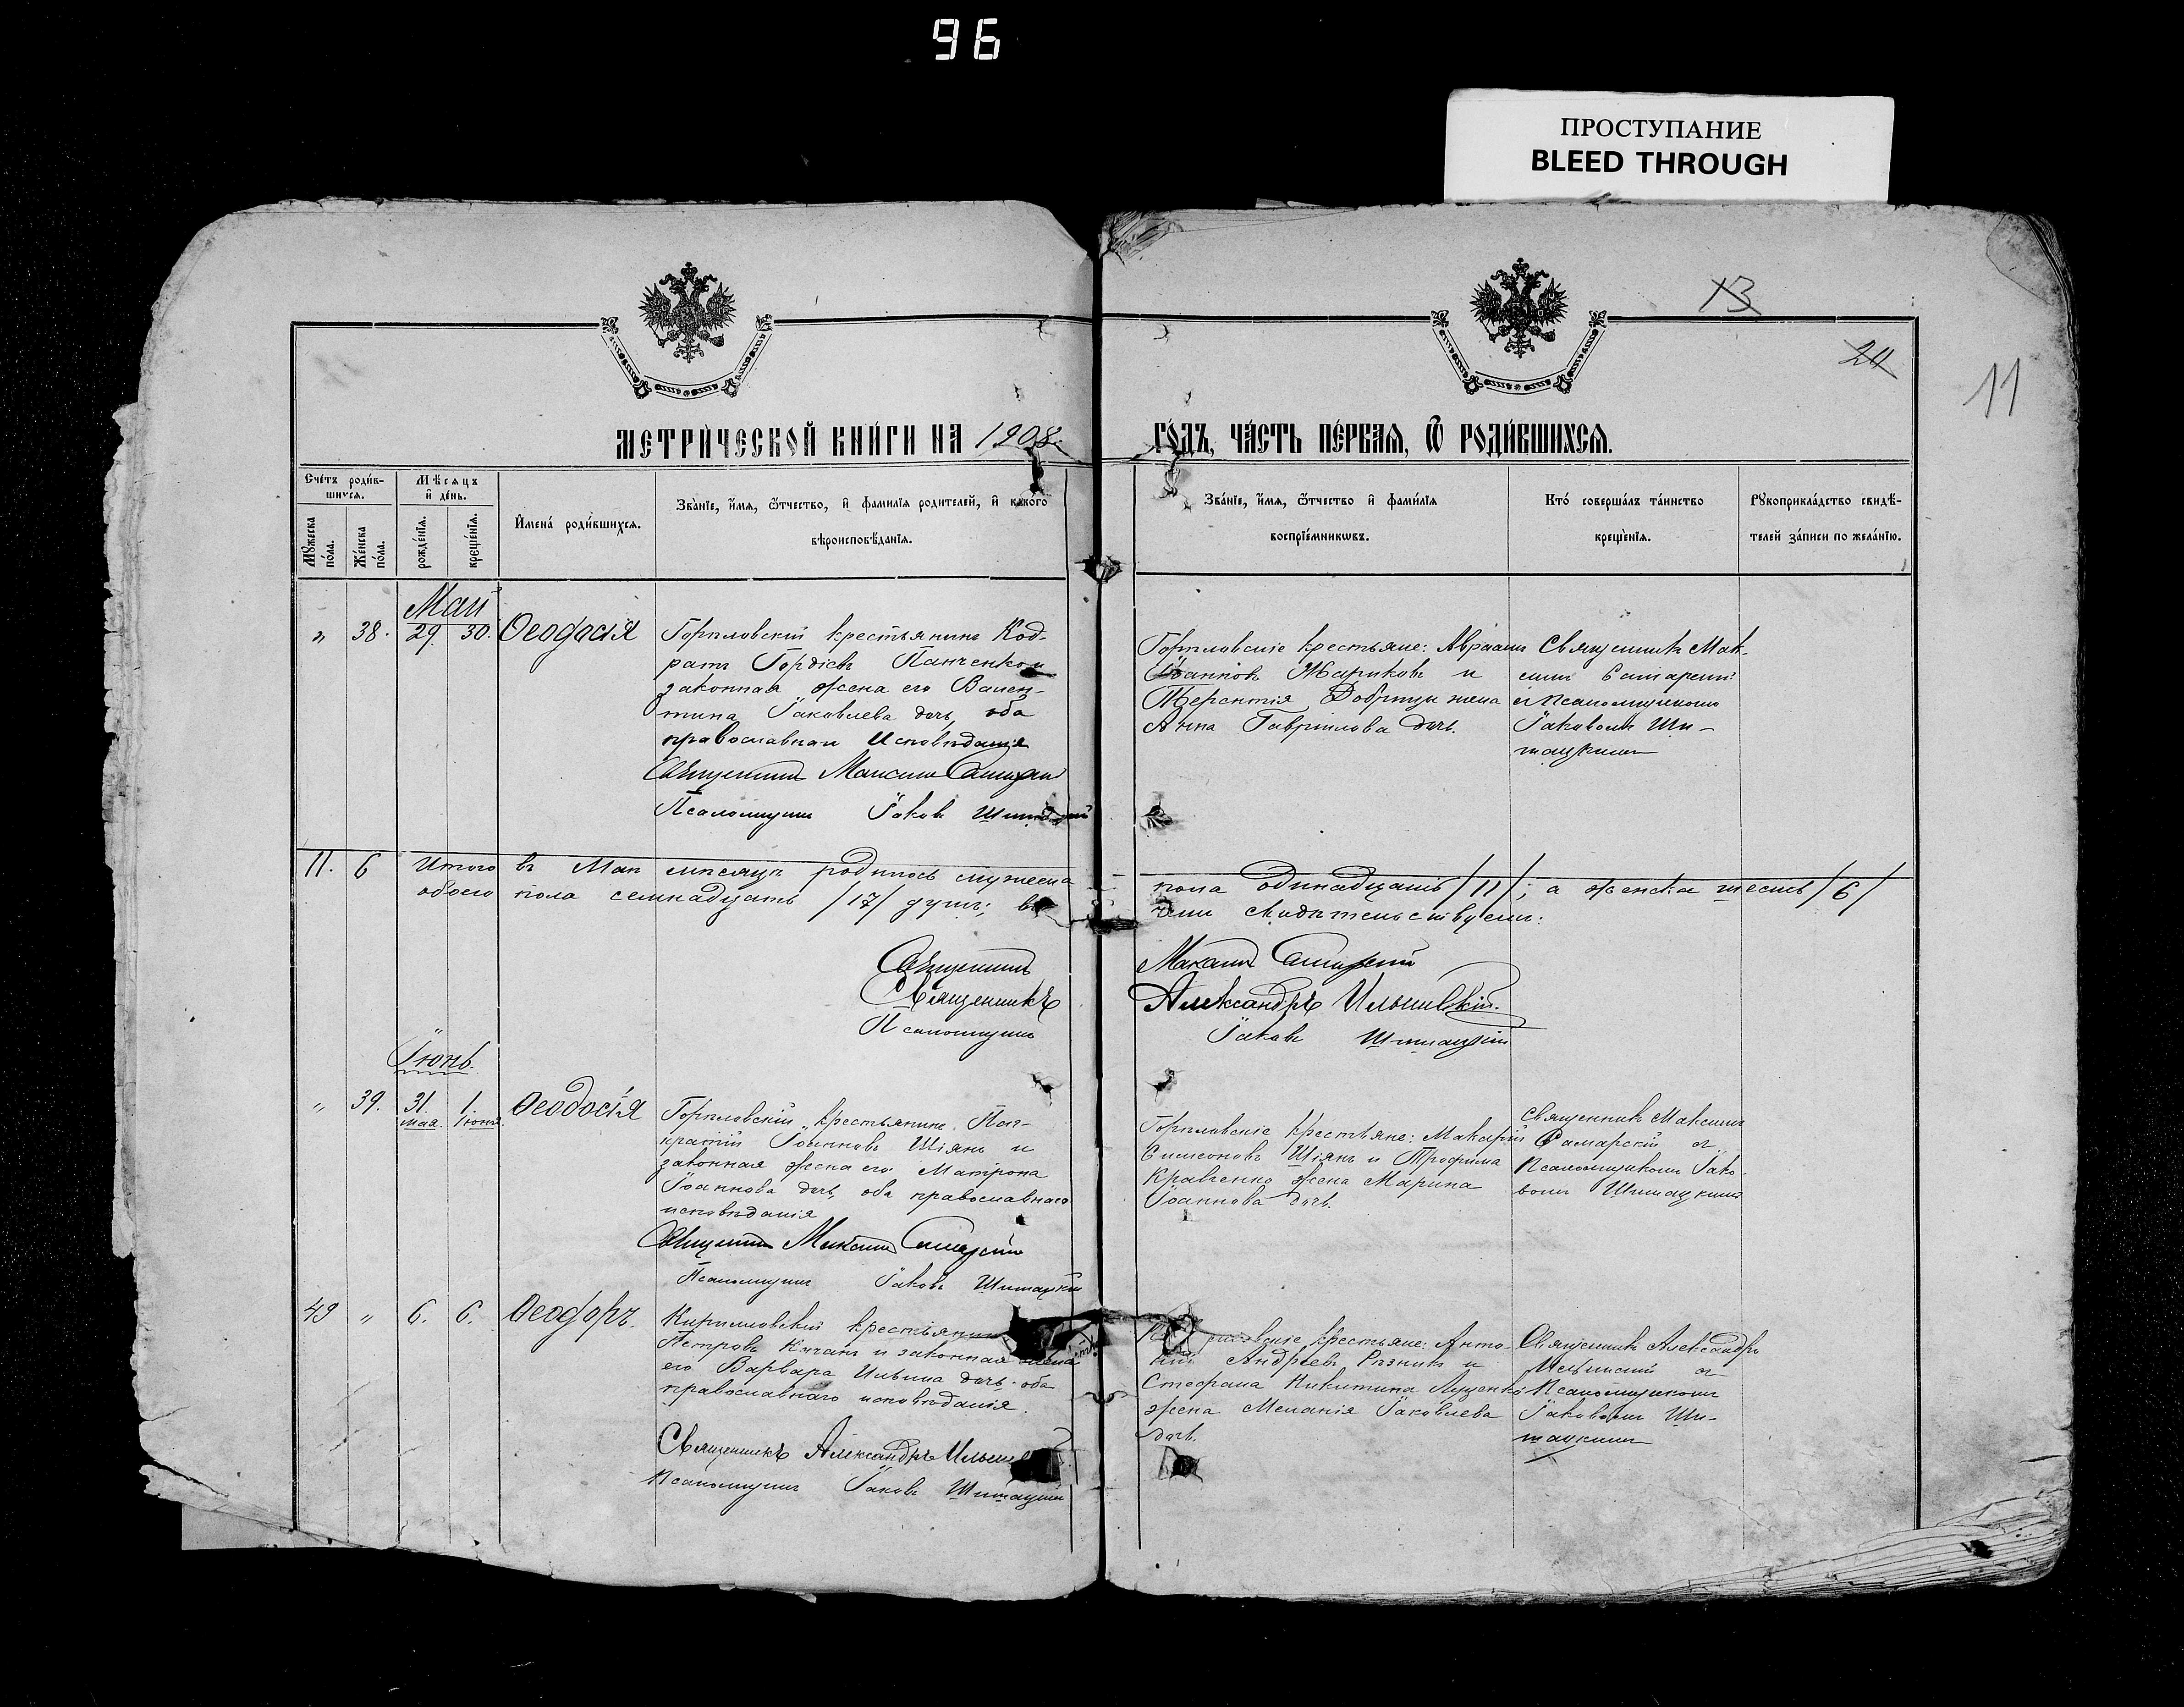 96
ПРОСТУПАНИЕ
BLEED THROUGH
13
24
11
МЕТРИ́ЧЕСКОЙ КНИ́ГИ НА 1908
ГО́ДЪ, ЧА́СТЬ ПЕ́РВАЯ, Ѿ РОДИ́ВШИХСЯ.
Сче́тъ роди́в-
шихся.
Мѣсяцъ
и҆ де́нь.
Мꙋжеска по́ла.
Же́нска по́ла.
рожде́нїѧ.
креще́нїѧ.
И҆мена́ роди́вшихсѧ.
Зва́нїе, и҆́мѧ, ѻ҆́тчество, и҆ фами́лїѧ роди́телей, и҆ како́гѡ
вѣроисповѣ́данїѧ.
Зва́нїе, и҆́мѧ, ѻ҆́тчество и҆ фами́лїѧ
воспрїе́мникѡвъ.
Кто́ соверша́лъ та́инство
креще́нїѧ.
Рꙋкоприкла́дство свидѣ́-
телей за́писи по жела́нїю.
Май
" 38. 29. 30. Ѳеодосія
Горпловскій крестьянинъ Код-
ратъ Гордіевъ Панченко и
законная жена его Вален-
тина Іаковлева дочь, оба
православнаго исповѣданія
Священникъ Максимъ Самарскій
Псаломщикъ Іаковъ Шишацкій
Горпловскіе крестьяне: Авраамъ
Іоанновъ Жариковъ и
Терентія жена
Анна Гавріилова дочь.
Священникъ Мак-
симъ Самарскій
съ Псаломщикомъ
Іаковомъ Ши-
шацкимъ
11. 6 Итого въ Маѣ мѣсяцѣ родилось мужеска
пола одинадцать /11/; а женска шесть /6/
обоего пола семнадцать /17/ душъ; въ
чемъ свидѣтельствуемъ:
Священникъ Максимъ Самарскій
Священникъ Александръ
Псаломщикъ Іаковъ Шишацкій
Іюнь.
" 39. 31. мая. 1. іюня. Ѳеодосія
Горпловскій крестьянинъ Пан-
кратій Іоанновъ Шіянъ и
законная жена его Матрона
Іоаннова дочь, оба православнаго
исповѣданія
Священникъ Максимъ Самарскій
Псаломщикъ Іаковъ Шишацкій
Горпловскіе крестьяне: Макарій
Симеоновъ Шіянъ и Трофима
Кравченко жена Марина
Іоаннова дочь.
Священникъ Максимъ
Самарскій съ
Псаломщикомъ Іако-
вомъ Шишацкимъ
49 " 6. 6. Ѳеодоръ.
Кирилловскій крестьянинъ
Петровъ и законная жена
его Варвара Ильина дочь, оба
православнаго исповѣданія.
Священникъ Александръ
Псаломщикъ Іаковъ Шишацкій
крестьяне: Анто-
ній Андреевъ Рѣзникъ и
Стефана Никитина Луценко
жена Меланія Іаковлева
дочь.
Священникъ Александръ
съ
Псаломщикомъ
Іаковомъ Ши-
шацкимъ